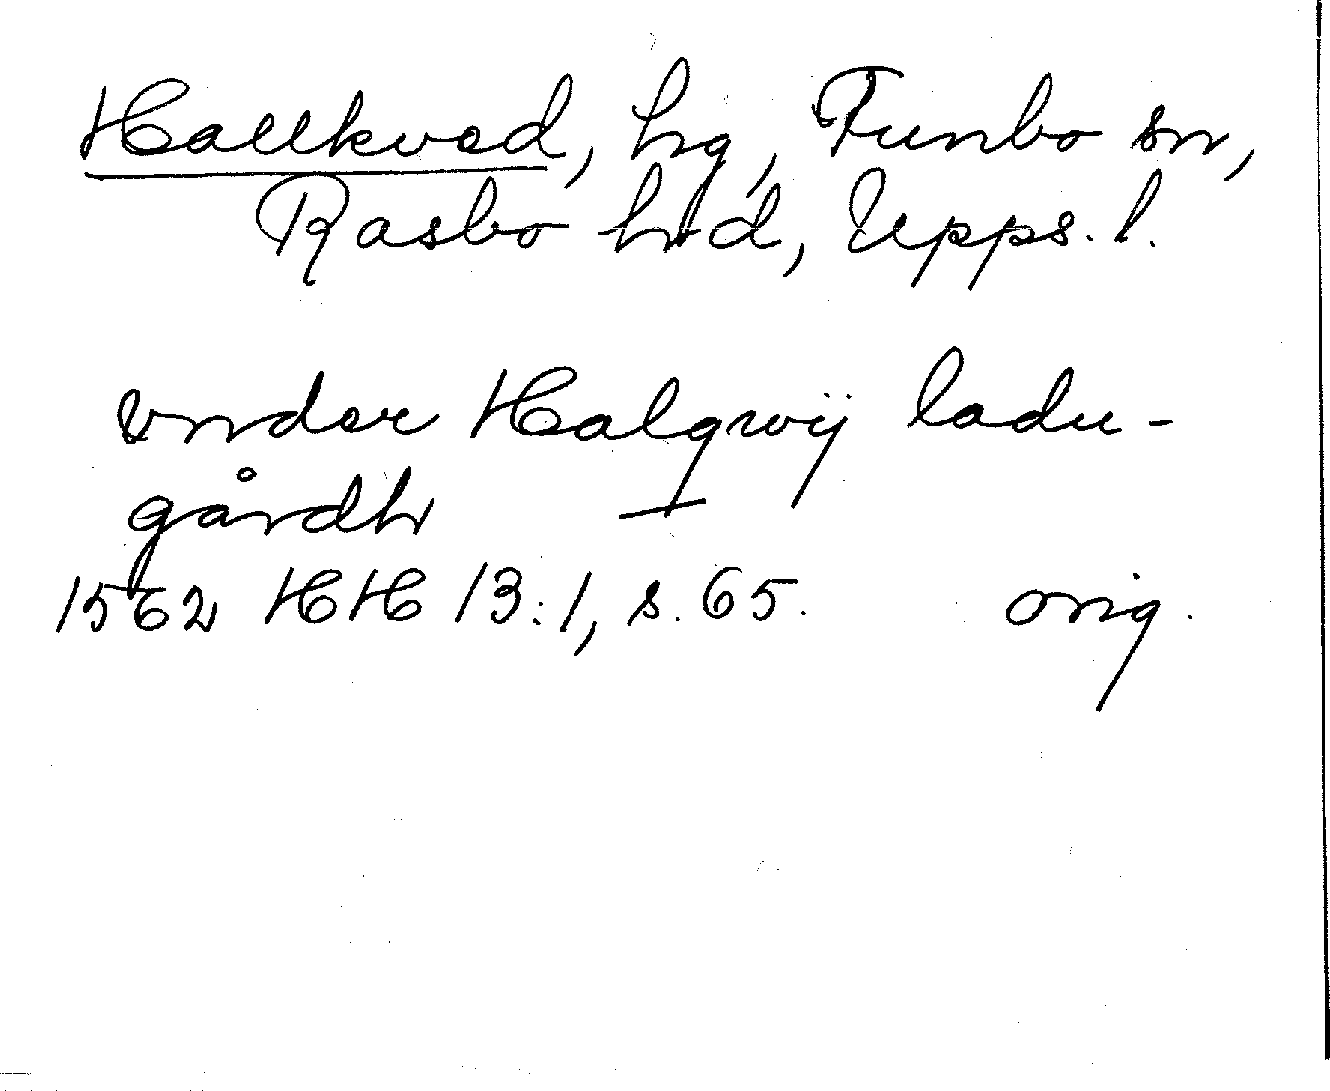 Hallkved, hg, Funbo sn,
Rasbo hd, Upps. l.
vnder Halqwij ladu-
gårdh
1562 HH 13:1, s. 65. orig.